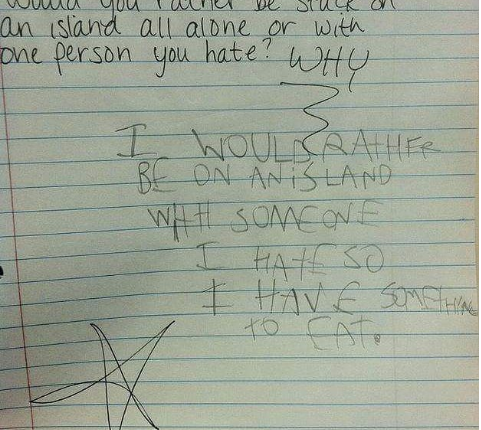 would you rather be stuck on
an island all alone or with
one person you hate? WHY
I WOULD RATHER
BE ON AN iSLAND
WITH SOMEONE
I HATE SO
I HAVE SOMETHING
to EAT.